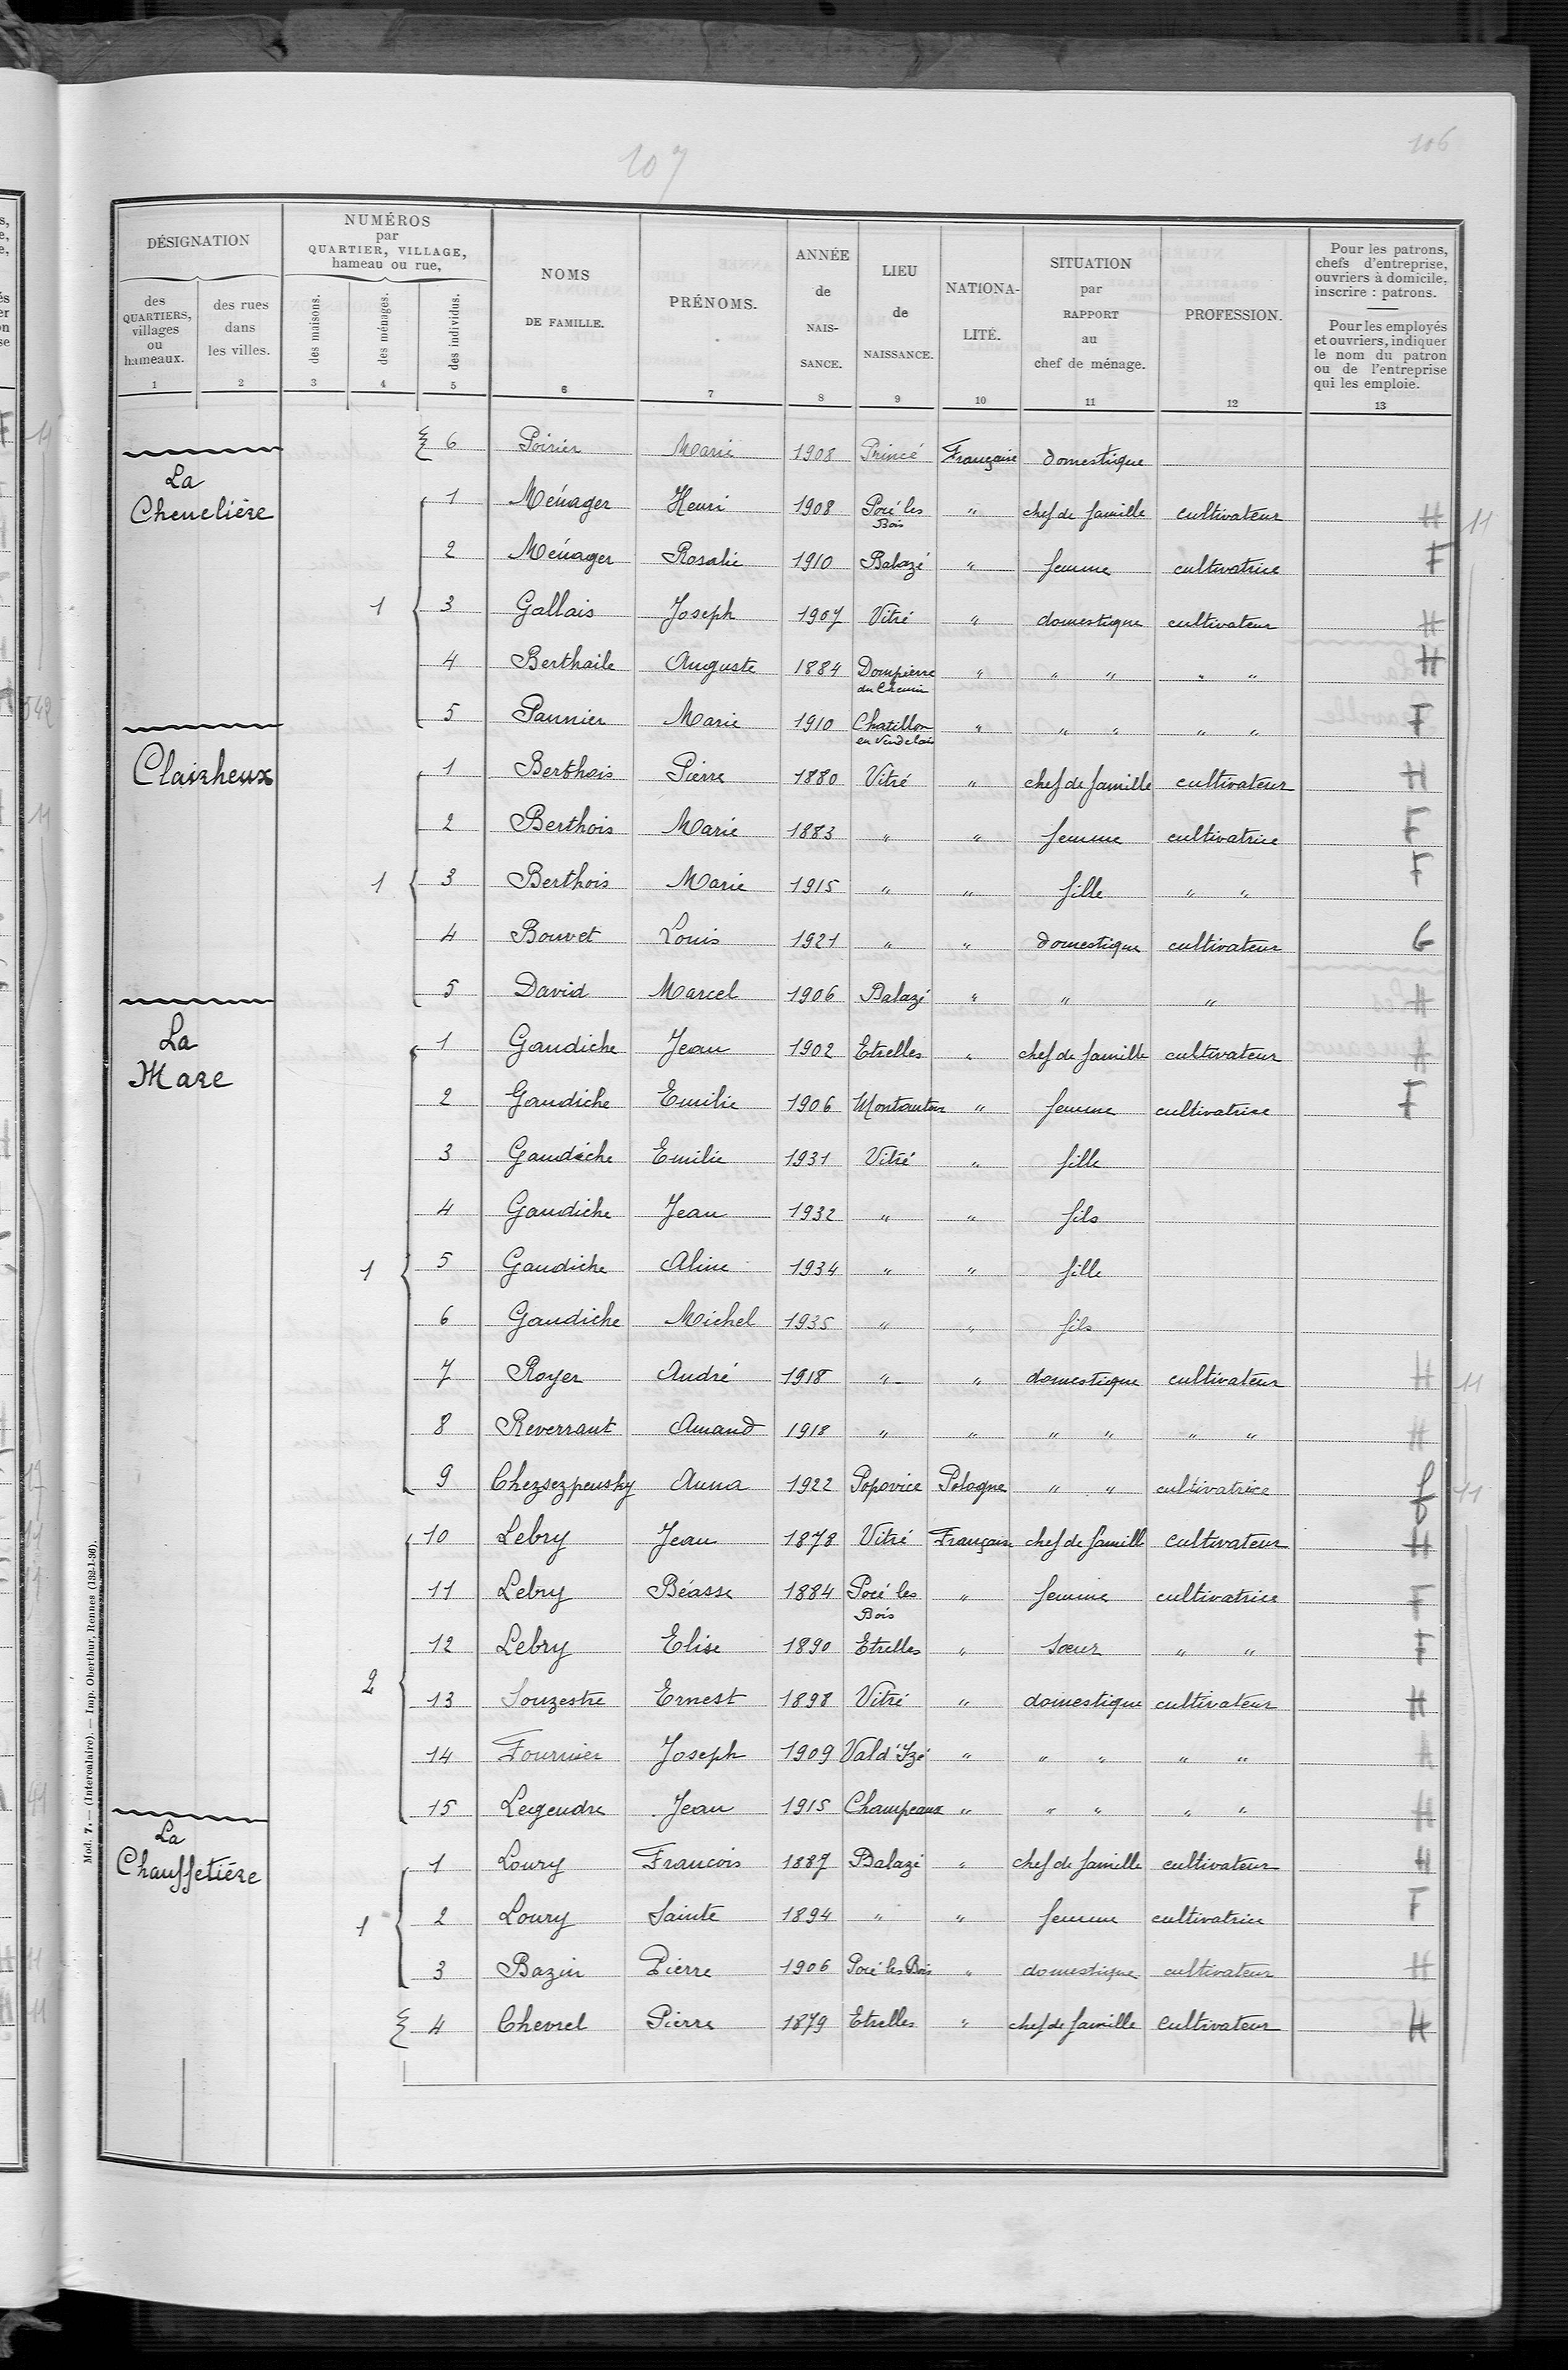 107
106
DÉSIGNATION
NUMÉROS
par
QUARTIER, VILLAGE,
hameau ou rue,
des
QUARTIERS,
villages
ou
hameaux.
des rues
dans
les villes.
des maisons.
des ménages.
des individus.
NOMS
DE FAMILLE.
PRÉNOMS.
ANNÉE
de
NAIS-
SANCE.
LIEU
de
NAISSANCE.
NATIONA-
LITÉ.
SITUATION
par
RAPPORT
au
chef de ménage.
PROFESSION.
Pour les patrons,
chefs d'entreprise,
ouvriers à domicile,
inscrire : patrons.
Pour les employés
et ouvriers, indiquer
le nom du patron
ou de l'entreprise
qui les emploie.
1 2 3 4 5 6 7 8 9 10 11 12 13
6 Poirier Marie 1908 Princé Française domestique
La
Chenelière
1 Ménager Henri 1908 Pocé les Bois " chef de famille cultivateur H 11
2 Ménager Rosalie 1910 Balazé " femme cultivatrice F
1 3 Gallais Joseph 1907 Vitré " domestique cultivateur H
4 Berthaile Auguste 1884 Dompierre du Chemin " " " " " H
5 Pannier Marie 1910 Chatillon en Vendelais " " " " " F
Clairheux
1 Berthois Pierre 1880 Vitré " chef de famille cultivateur H
2 Berthois Marie 1883 " " femme cultivatrice F
1 3 Berthois Marie 1915 " " fille " " F
4 Bouvet Louis 1921 " " domestique cultivateur G
5 David Marcel 1906 Balazé " " " H
La
Mare
1 Gaudiche Jean 1902 Etrelles " chef de famille cultivateur H
2 Gaudiche Emilie 1906 Montautour " femme cultivatrice F
3 Gaudiche Emilie 1931 Vitré " fille
4 Gaudiche Jean 1932 " " fils
1 5 Gaudiche Aline 1934 " " fille
6 Gaudiche Michel 1935 " " fils
7 Royer André 1918 " " domestique cultivateur H 11
8 Reverrant Amand 1918 " " " " " " H
9 Chezsezpensky Anna 1922 Popovice Pologne " " cultivatrice f 11
10 Lebry Jean 1878 Vitré Française chef de famille cultivateur H
11 Lebry Béasse 1884 Pocé les Bois " femme cultivatrice F
12 Lebry Elise 1890 Etrelles " sœur " " F
2 13 Souzestre Ernest 1898 Vitré " domestique cultivateur H
14 Fournier Joseph 1909 Val d'Izé " " " " " H
15 Legendre Jean 1915 Champeaux " " " " " H
La
Chauffetière
1 Loury Francois 1887 Balazé " chef de famille cultivateur H
1 2 Loury Sainte 1894 " " femme cultivatrice F
3 Bazin Pierre 1906 Pocé les Bois " domestique cultivateur H
4 Chevrel Pierre 1879 Etrelles " chef de famille cultivateur H
Mod. 7. — (Intercalaire). — Imp. Oberthur, Rennes (132-1-36).